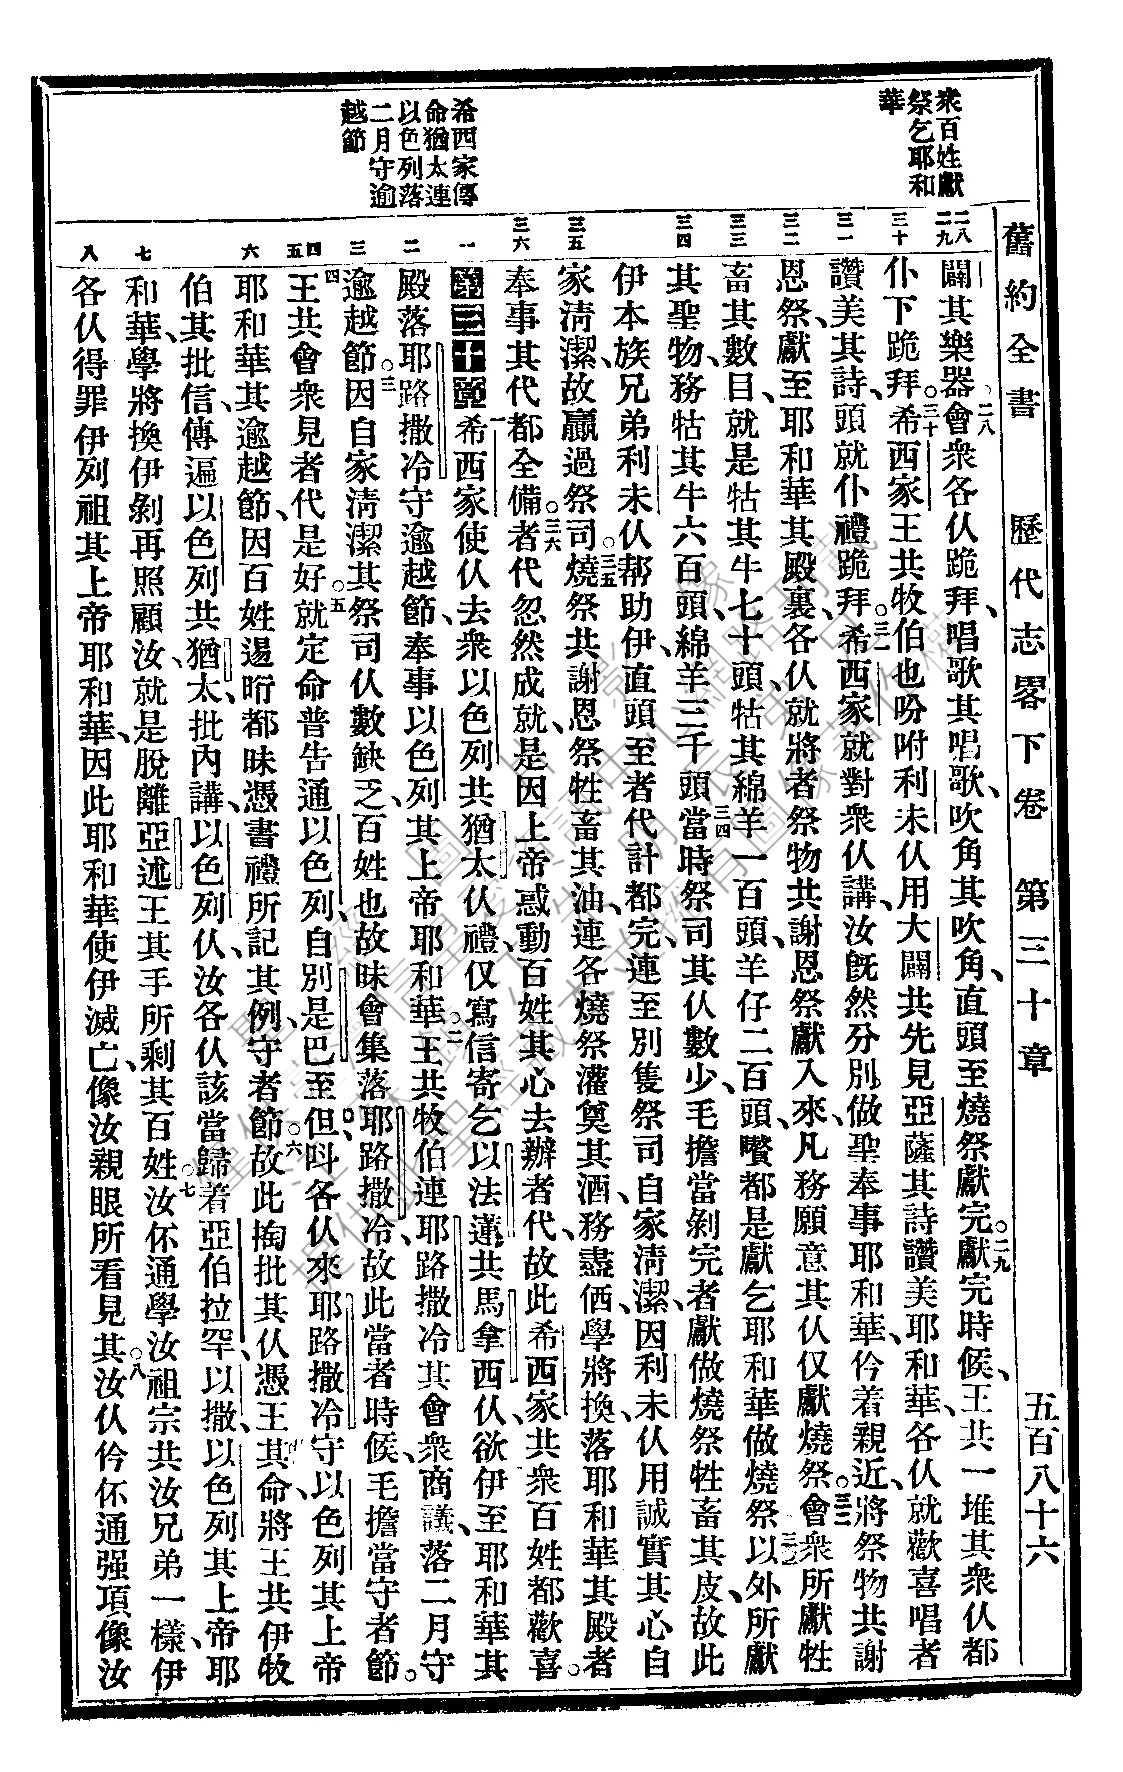 舊約全書　歷代志畧下卷　第三十章　五百八十六
衆百姓獻
祭乞耶和
華
希西家傳
命猶太連
以色列落
二月守逾
越節
二八 二九 三十 三一 三二 三三 三四 三五 三六 一 二 三 四 五 六 七 八
闢其樂器。二八會衆各仈跪拜、唱歌其唱歌、吹角其吹角、直頭至燒祭獻完。二九獻完時候、王共一堆其衆仈都
仆下跪拜。三十希西家王共牧伯也吩咐利未仈用大闢共先見亞薩其詩讚美耶和華、各仈就歡喜唱者
讚美其詩、頭就仆禮跪拜。三一希西家就對衆仈講、汝旣然分別、做聖奉事耶和華、仱着親近、將祭物共謝
恩祭、獻至耶和華其殿裏、各仈就將者祭物共謝恩祭獻入來、凡務願意其仈仅獻燒祭。三二會衆所獻牲
畜其數目、就是牯其牛七十頭、牯其綿羊一百頭、羊仔二百頭、囋都是獻乞耶和華做燒祭、三三以外所獻
其聖物、務牯其牛六百頭、綿羊三千頭、三四當時祭司其仈數少、毛擔當剝完者獻做燒祭牲畜其皮、故此
伊本族兄弟利未仈帮助伊、直頭至者代計都完、連至別隻祭司自家淸潔、因利未仈用誠實其心自
家淸潔、故贏過祭司。三五燒祭共謝恩祭牲畜其油、連各燒祭灌奠其酒、務盡価、學將換、落耶和華其殿者
奉事其代都全備。三六者代忽然成就、是因上帝惑動百姓其心去辦者代、故此希西家共衆百姓都歡喜。
第三十章 一希西家使仈去衆以色列共猶太仈禮、仅寫信寄乞以法蓮共馬拿西仈、欲伊至耶和華其
殿落耶路撒冷守逾越節、奉事以色列其上帝耶和華、二王共牧伯連耶路撒冷其會衆商議、落二月守
逾越節。三因自家淸潔其祭司仈數缺乏、百姓也故昧會集落耶路撒冷、故此當者時候、毛擔當守者節。
四王共會衆見者代是好、五就定命普告通以色列、自別是巴至但、呌各仈來耶路撒冷守以色列其上帝
耶和華其逾越節、因百姓逷㫼都昧憑書禮所記其例、守者節。六故此掏批其仈憑王其命、將王共伊牧
伯其批信、傳遍以色列共猶太、批內講、以色列仈、汝各仈該當歸着亞伯拉罕、以撒、以色列其上帝耶
和華、學將換伊剝再照顧汝就是脫離亞述王其手所剩其百姓、七汝伓通學汝祖宗共汝兄弟一樣、伊
各仈得罪伊列祖其上帝耶和華、因此耶和華使伊滅亡、像汝親眼所看見其。八汝仈仱伓通强項像汝